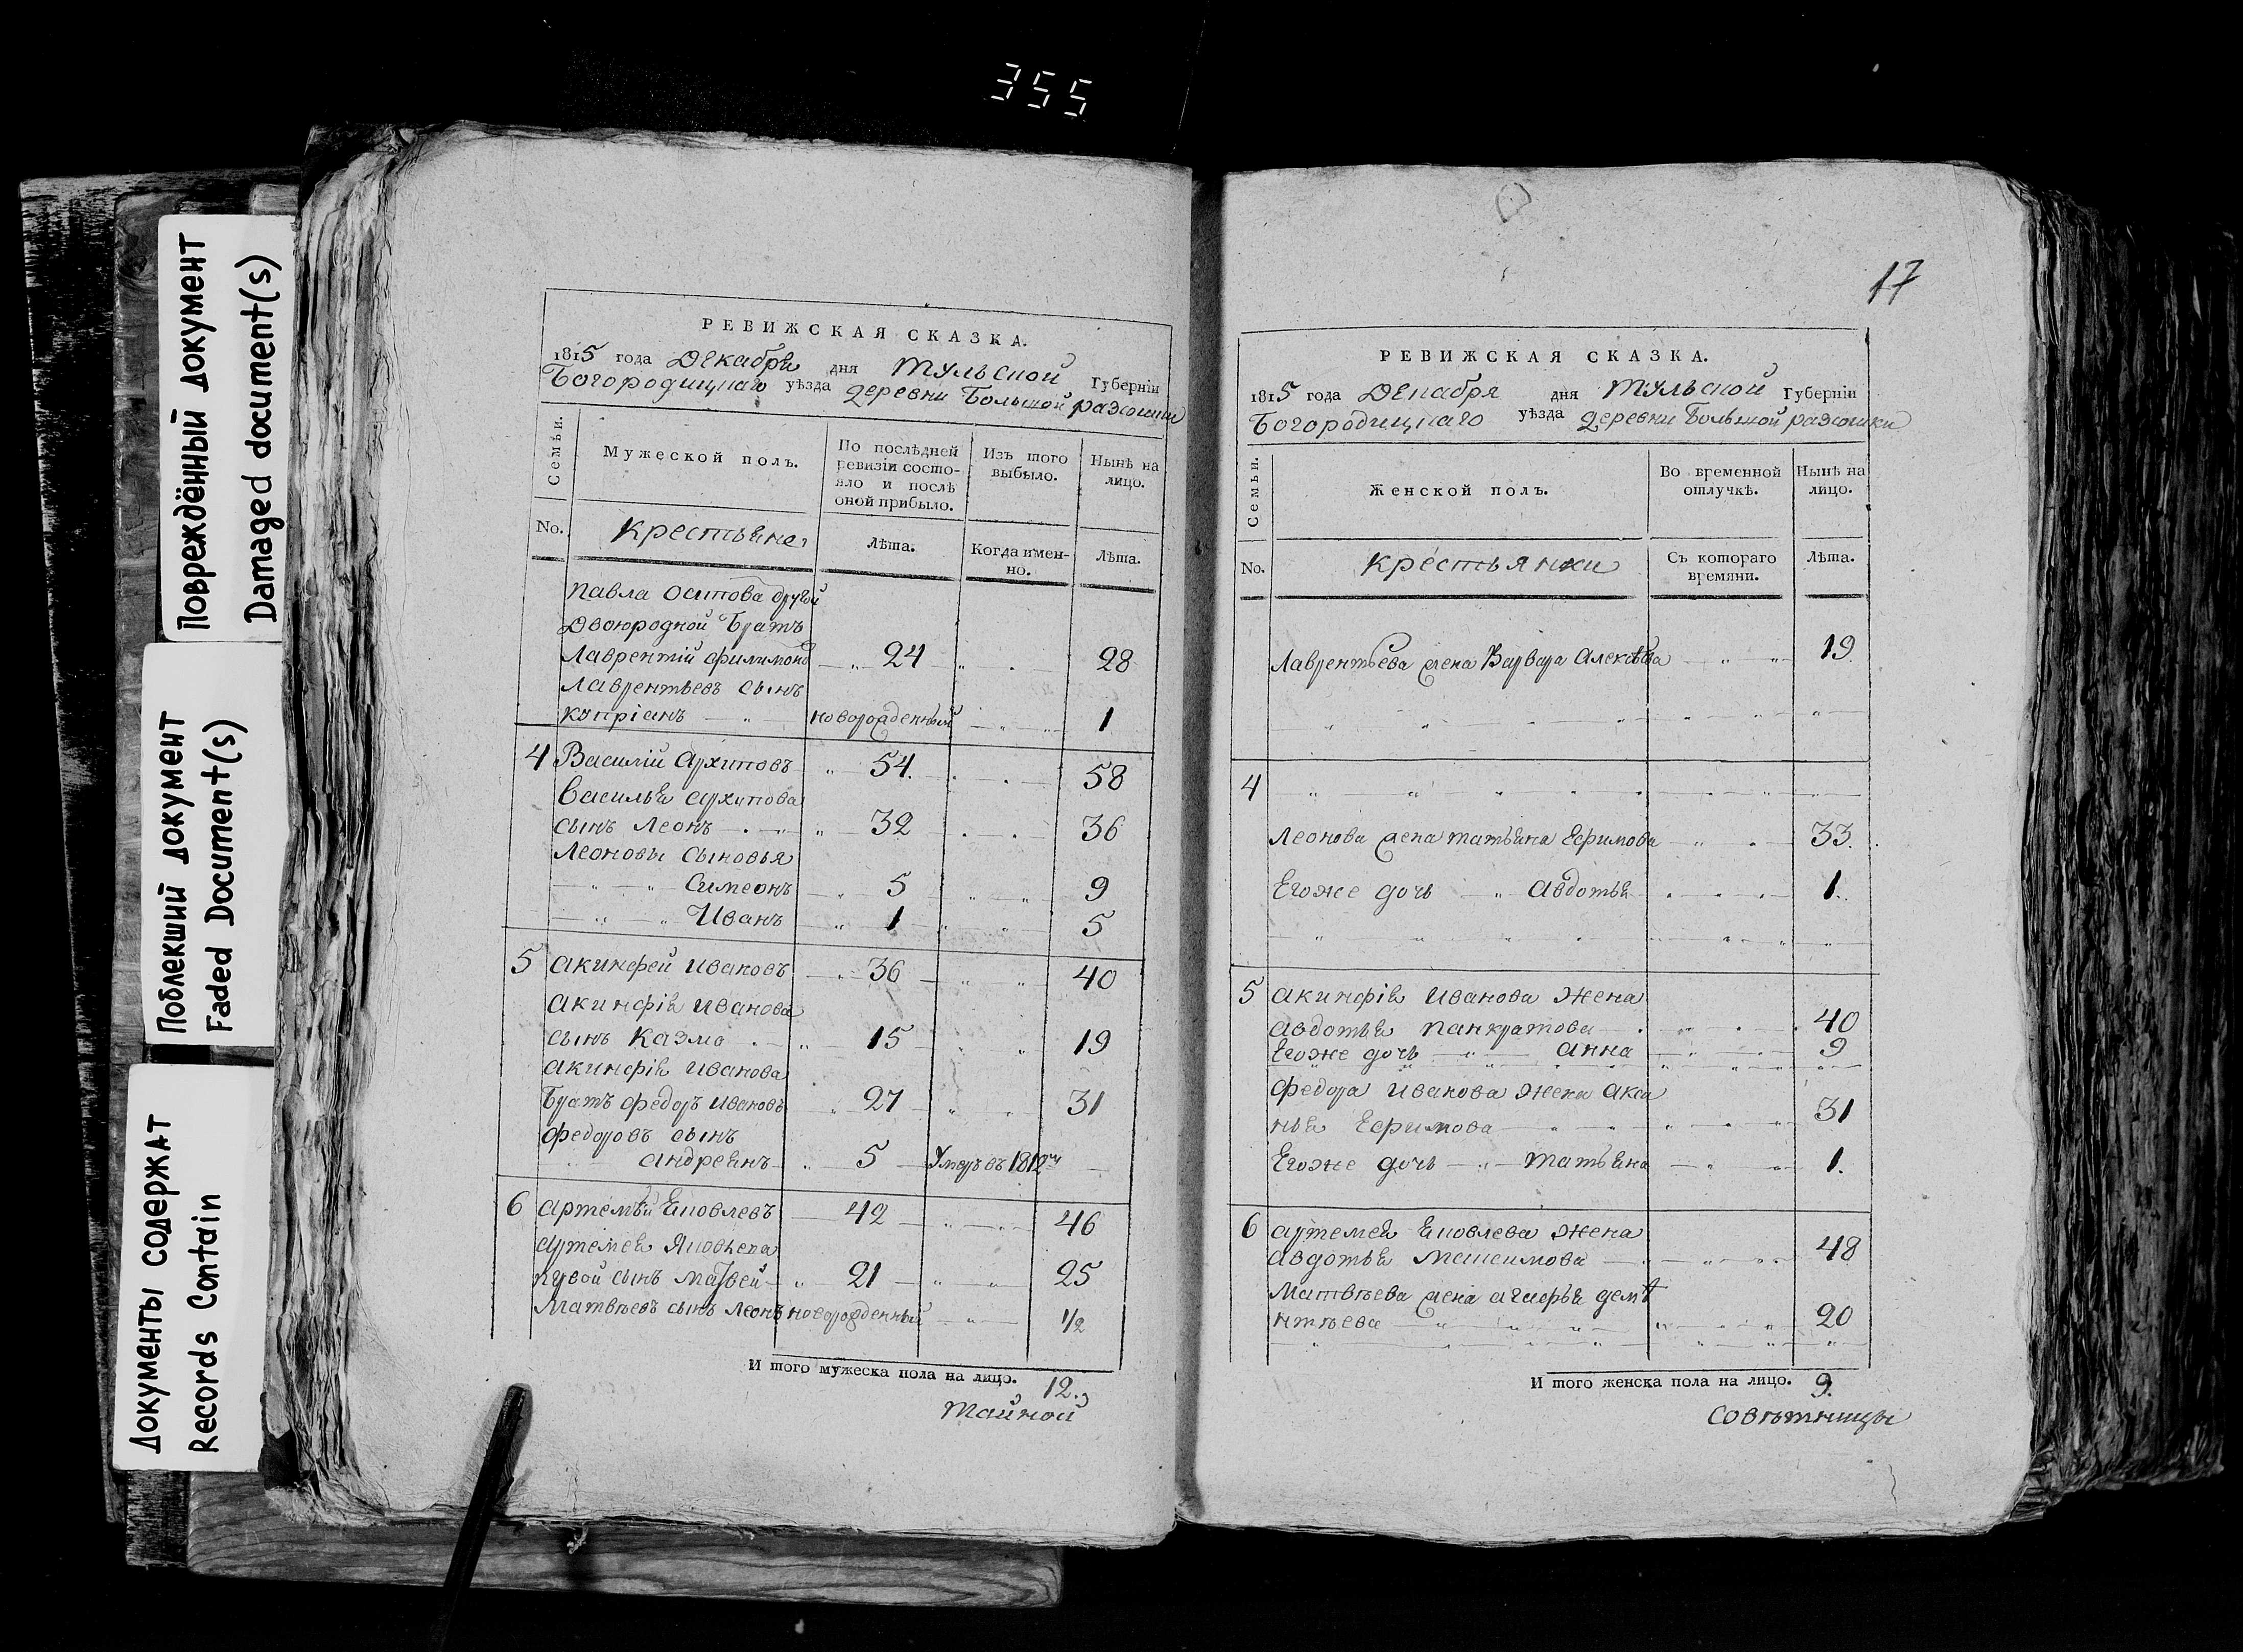 355
Повреждённый документ
Damaged document(s)
Поблекший документ
Faded Document(s)
Документы содержат
Records Contain
РЕВИЖСКАЯ СКАЗКА.
1815 года Декабря дня Тульской Губерніи
Богородицкаго уѣзда деревни Большой
Семьи.
Мужеской полъ.
По послѣдней ревизіи состо-
яло и послѣ
оной прибыло.
Изъ того выбыло.
Нынѣ на лицо.
No.
Крестьяне
Лѣта.
Когда имен-
но.
Лѣта.
Павла Осипова другой
Двоюродной Братъ
Лаврентій Филимоновъ 24 28
Лаврентьевъ сынъ
Копріанъ новорожденный 1
4 Василій Архиповъ 54. 58
Василья Архипова
сынъ Леонъ 32 36
Леоновы сыновья
Симеонъ 5 9
Иванъ 1 5
5 Акинфей Ивановъ 36 40
Акинфія Иванова
сынъ Казма 15 19
Акинфія Иванова
Братъ Федоръ Ивановъ 27 31
Федоровъ сынъ
Андреянъ 5 Умеръ въ 1812мъ
6 Артемѣй Яковлевъ 42 46
Артемея Яковлева
первой сынъ Матвей 21 25
Матвѣевъ сынъ Леонъ новорожденный 1/2
И того мужеска пола на лицо. 12.
Тайной
17
РЕВИЖСКАЯ СКАЗКА.
1815 года Декабря дня Тульской Губерніи
Богородицкаго уѣзда деревни Большой
Семьи.
Женской полъ.
Во временной отлучкѣ.
Нынѣ на лицо.
No.
Крестьянки
Съ котораго
времяни.
Лѣта.
Лаврентьева жена Варвара Алексѣева 19
4
Леонова жена Татьяна Ефимова 33.
Егоже дочь Авдотья 1.
5 Акинфія Иванова жена
Авдотья Панкратова 40
Егоже дочь Анна 9
Федора Иванова жена Акси
нья Ефимова 31
Егоже дочь Татьяна 1.
6 Артемея Яковлева жена
Авдотья Максимова 48
Матвѣева жена Агафья Деме
нтьева 20
И того женска пола на лицо. 9.
Совѣтницы